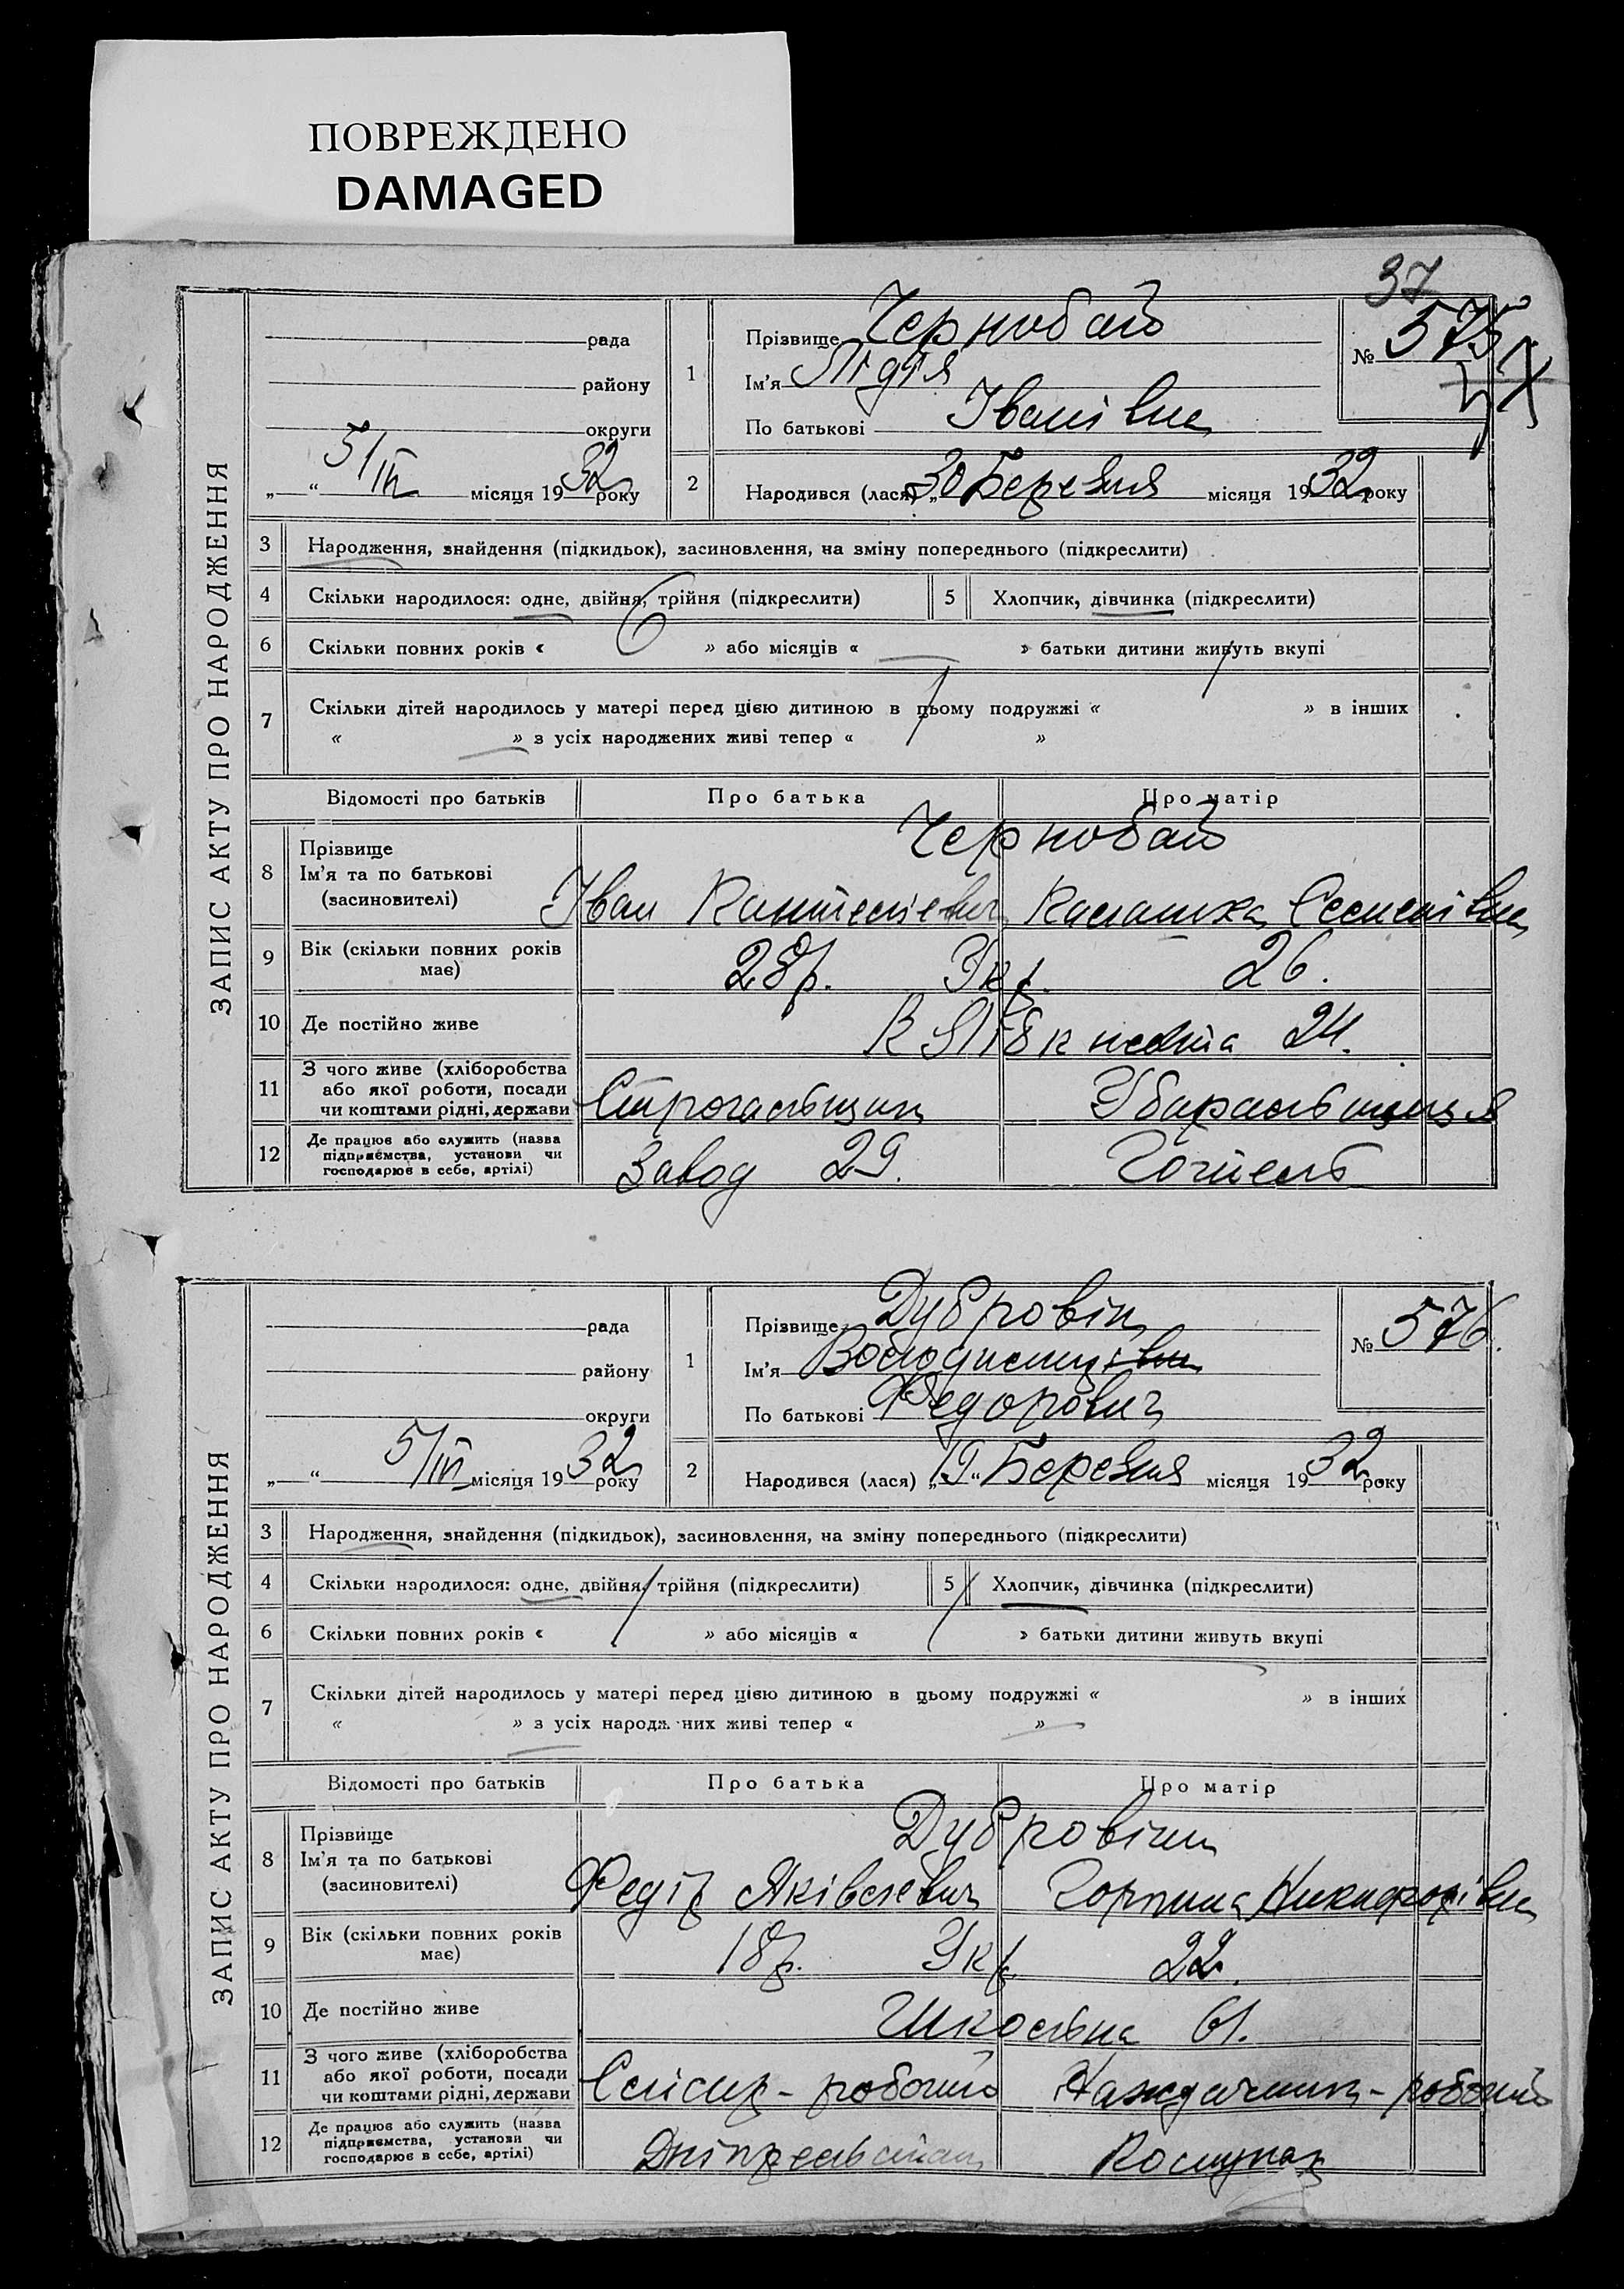 ПОВРЕЖДЕНО
DAMAGED
37
ЗАПИС АКТУ ПРО НАРОДЖЕННЯ
рада
району
округи
„ “ 5/IV місяця 1932 року
1 Прізвище Чернобай
Ім'я Лідія
По батькові Іванівна
№ 575
2 Народився (лася) „30 Березня місяця 1932 року
3 Народження, знайдення (підкидьок), засиновлення, на зміну попереднього (підкреслити)
4 Скільки народилося: одне, двійня, трійня (підкреслити) 5 Хлопчик, дівчинка (підкреслити)
6 Скільки повних років « 6 » або місяців « » батьки дитини живуть вкупі
7 Скільки дітей народилось у матері перед цією дитиною в цьому подружжі « » в інших
« » з усіх народжених живі тепер « »
Відомості про батьків Про батька Про матір
8 Прізвище
Ім'я та по батькові
(засиновителі)
Чернобай
Іван
9 Вік (скільки повних років
має)
28 р. Укр. 26.
10 Де постійно живе
К Лібкнехта 24.
11 З чого живе (хліборобства
або якої роботи, посади
чи коштами рідні, держави
Строгальщик
12 Де працює або служить (назва
підприємства, установи чи
господарює в себе, артілі)
Завод 29. Готель
ЗАПИС АКТУ ПРО НАРОДЖЕННЯ
рада
району
округи
„ “ 5/IV місяця 1932 року
1 Прізвище Дубровін
Ім'я Володимир
По батькові Федорович
№ 576.
2 Народився (лася) „19“ Березня місяця 1932 року
3 Народження, знайдення (підкидьок), засиновлення, на зміну попереднього (підкреслити)
4 Скільки народилося: одне, двійня, трійня (підкреслити) 5 Хлопчик, дівчинка (підкреслити)
6 Скільки повних років « » або місяців « » батьки дитини живуть вкупі
7 Скільки дітей народилось у матері перед цією дитиною в цьому подружжі « » в інших
« » з усіх народж них живі тепер « »
Відомості про батьків Про батька Про матір
8 Прізвище
Ім'я та по батькові
(засиновителі)
Дубровіни
Федір Яківлевич Горпина Никифорівна
9 Вік (скільки повних років
має)
18 р. Укр. 22.
10 Де постійно живе
Шкільна 61.
11 З чого живе (хліборобства
або якої роботи, посади
чи коштами рідні, держави
Слісар - робочий Наждачник - робочий
12 Де працює або служить (назва
підприємства, установи чи
господарює в себе, артілі)
Дніпрельстан Комунар